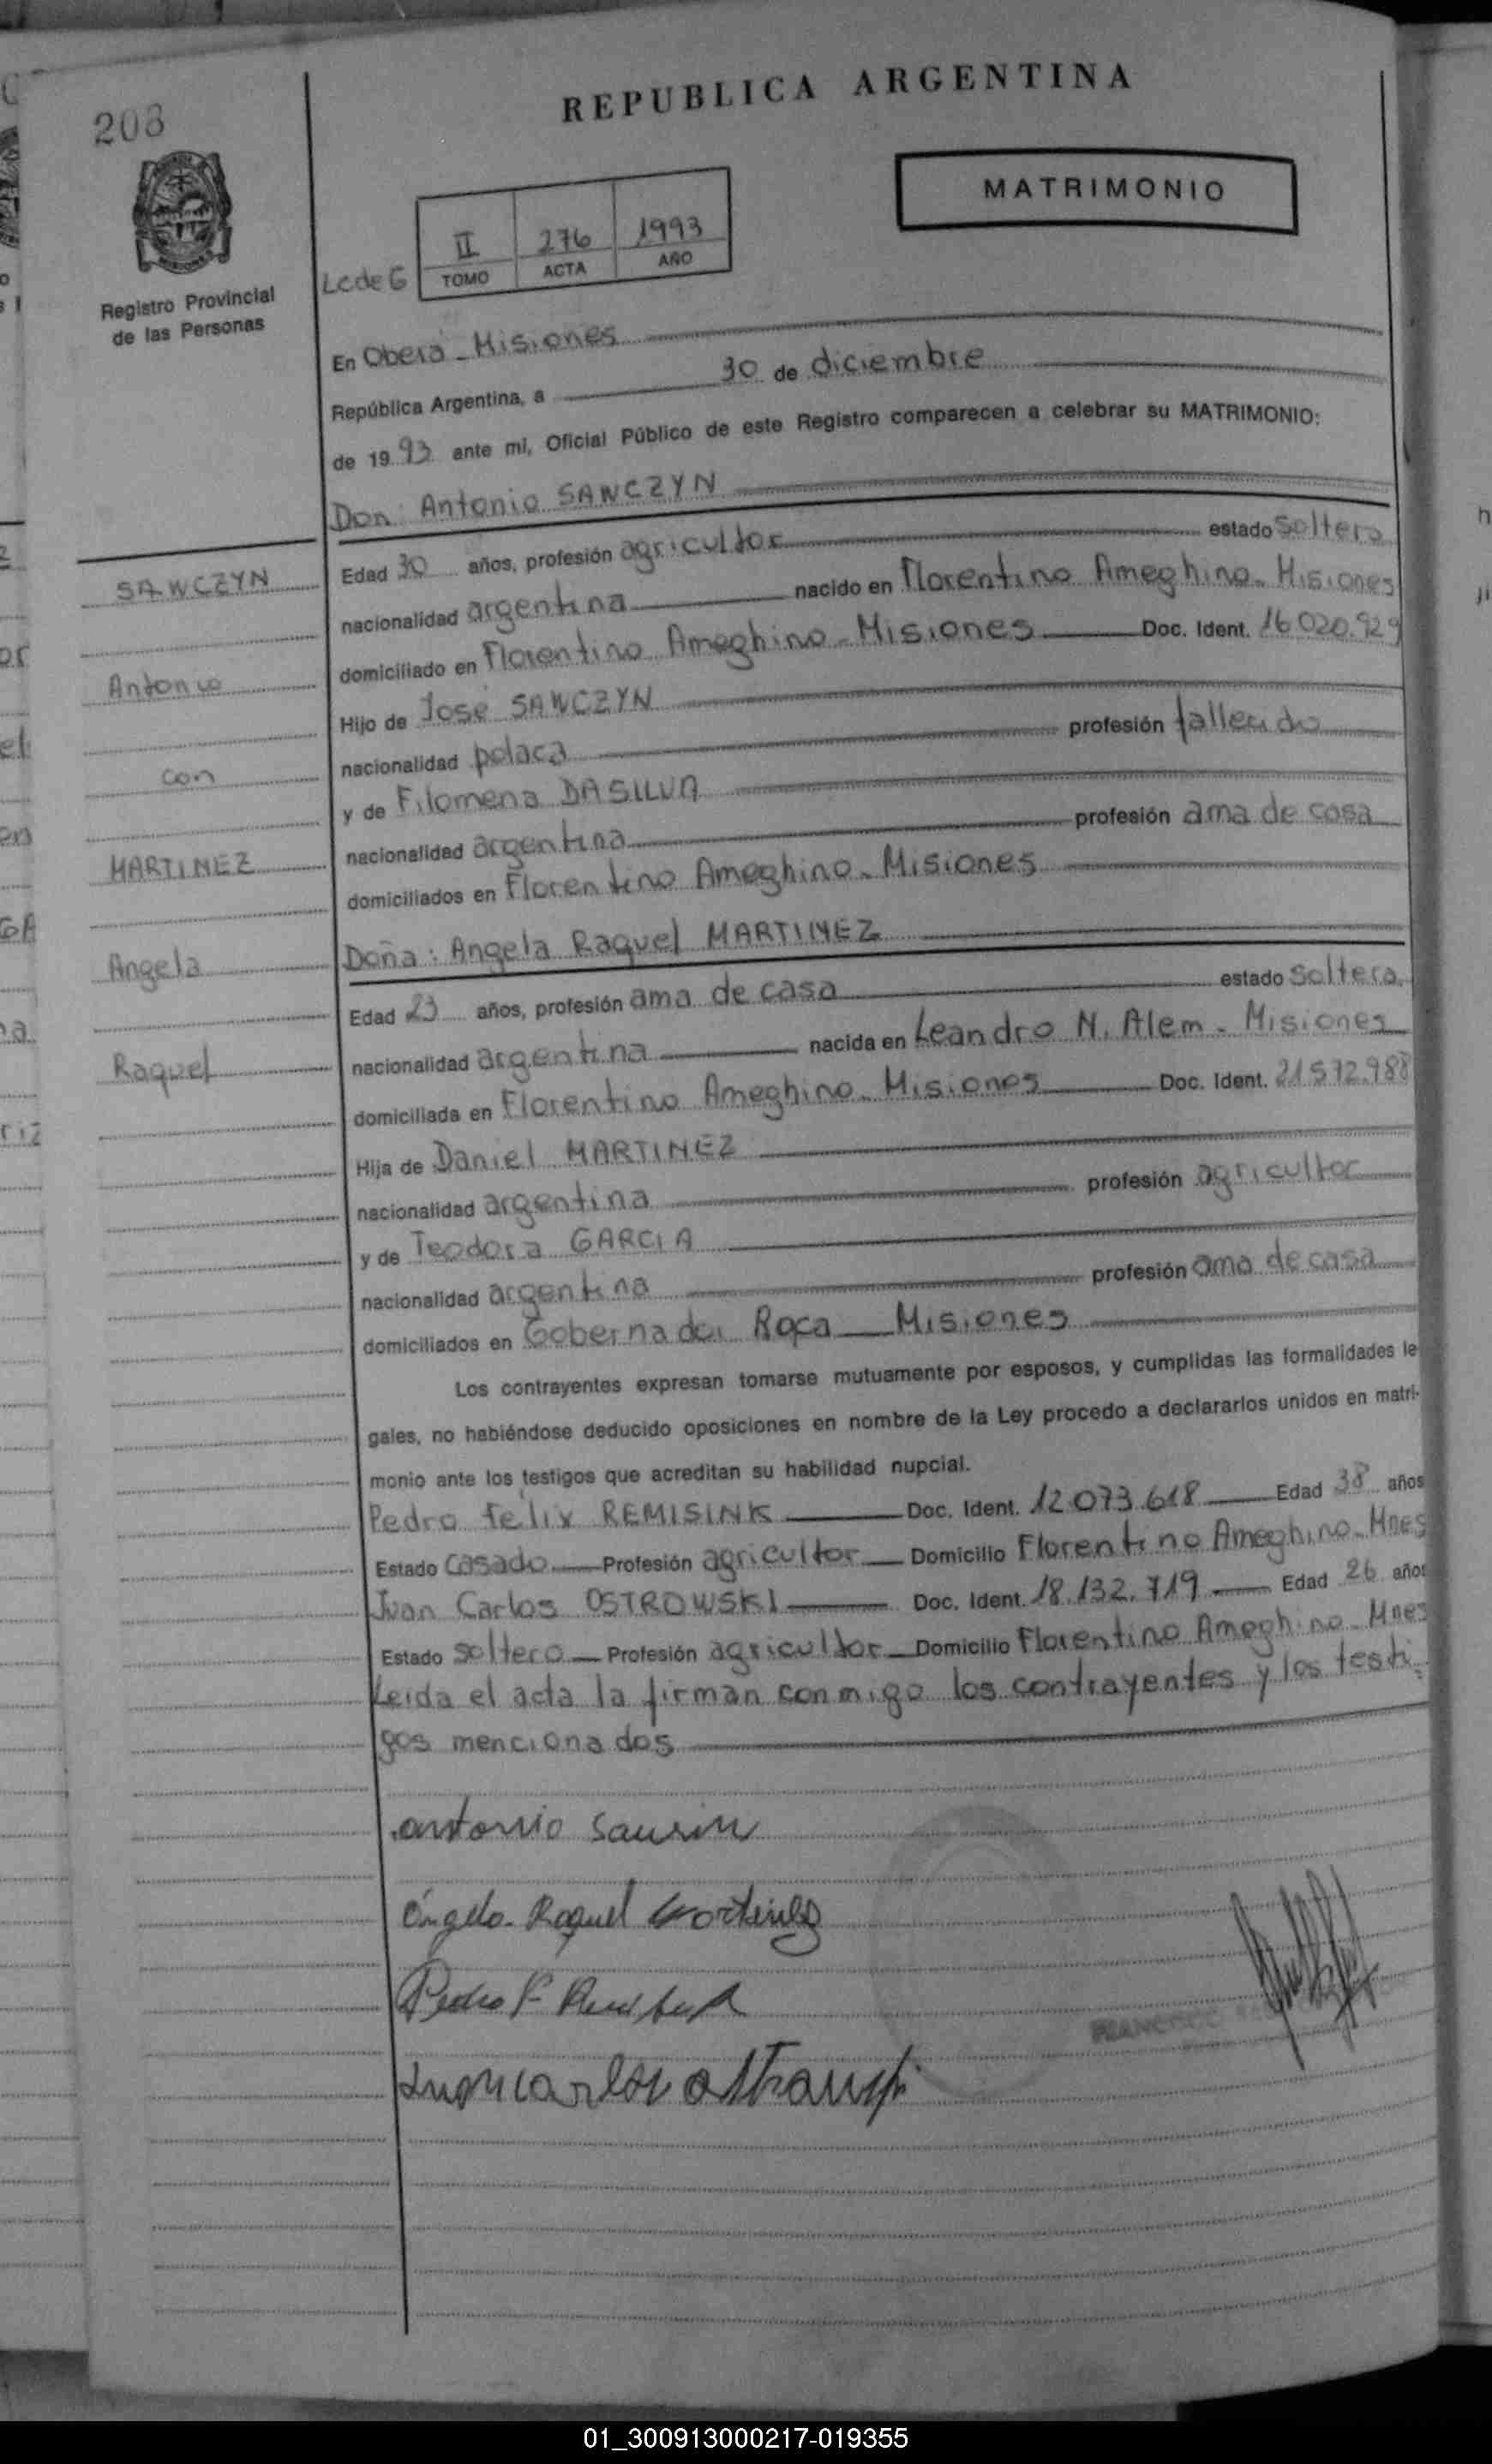 REPUBLICA ARGENTINA
208
MATRIMONIO
II 276 1993
TOMO ACTA AÑO
Lcde G
Registro Provincial
de las Personas
En Oberá - Misiones
República Argentina, a 30 de diciembre
de 1993 ante mi, Oficial Público de este Registro comparecen a celebrar su MATRIMONIO:
Don: Antonio SAWCZYN
Edad 30 años, profesión agricultor estado soltero
nacionalidad argentina nacido en Florentino Ameghino - Misiones
domiciliado en Florentino Ameghino - Misiones Doc. Ident. 16.020.929
Hijo de José SAWCZYN
nacionalidad polaca profesión fallecido
y de Filomena DASILVA
nacionalidad argentina profesión ama de casa
domiciliados en Florentino Ameghino - Misiones
Doña: Angela Raquel MARTINEZ
Edad 23 años, profesión ama de casa estado soltera
nacionalidad argentina nacida en Leandro N. Alem - Misiones
domiciliada en Florentino Ameghino - Misiones Doc. Ident. 21.572.988
Hija de Daniel MARTINEZ
nacionalidad argentina profesión agricultor
y de Teodora GARCIA
nacionalidad argentina profesión ama de casa
domiciliados en Gobernador Roca - Misiones
Los contrayentes expresan tomarse mutuamente por esposos, y cumplidas las formalidades le
gales, no habiéndose deducido oposiciones en nombre de la Ley procedo a declararlos unidos en matri-
monio ante los testigos que acreditan su habilidad nupcial.
Pedro Félix REMISINK Doc. Ident. 12.073.618 Edad 38 años
Estado casado Profesión agricultor Domicilio Florentino Ameghino - Mnes
Juan Carlos OSTROWSKI Doc. Ident. 18.132.719 Edad 26 años
Estado soltero Profesión agricultor Domicilio Florentino Ameghino - Mnes
Leída el acta la firman conmigo los contrayentes y los testi-
gos mencionados
SAWCZYN
Antonio
con
MARTINEZ
Angela
Raquel
antonio
Angela Raquel Martinez
Pedro F.
Juan carlos
FRANCISCO
01_300913000217-019355